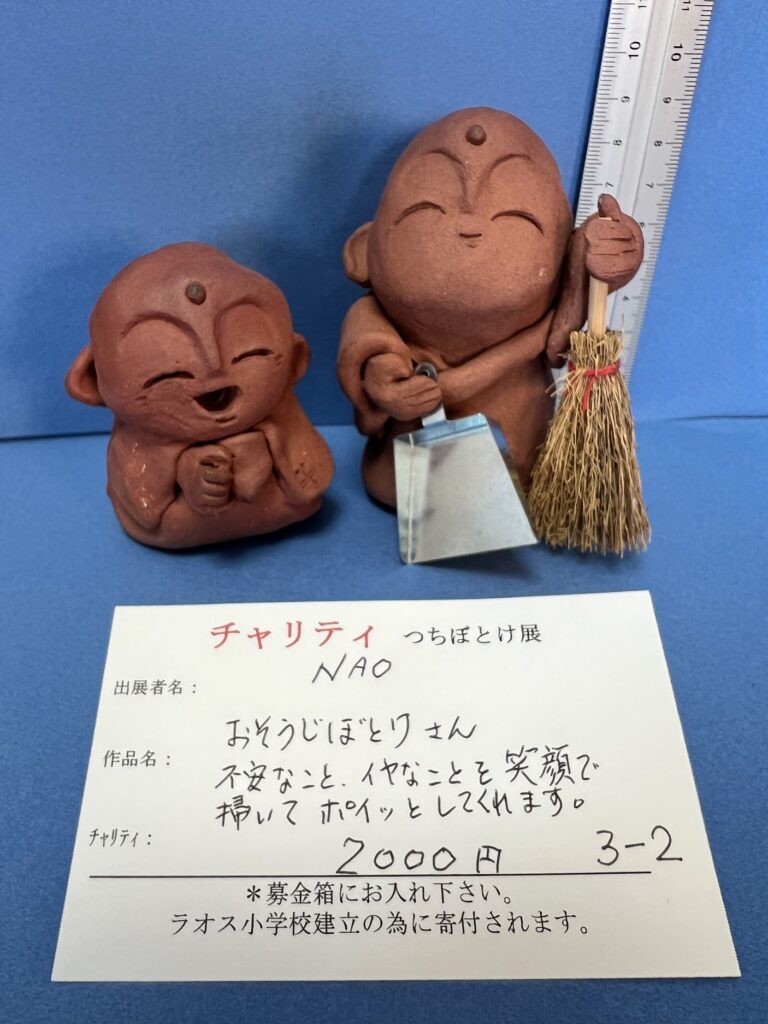 チャリティ つちぼとけ展
出展者名： NAO
作品名： おそうじぼとけさん
不安なこと、イヤなことを笑顔で
掃いてポイッとしてくれます。
ﾁｬﾘﾃｨ： 2000円 3-2
＊募金箱にお入れ下さい。
ラオス小学校建立の為に寄付されます。
11
11
10
10
9
9
8
8
7
7